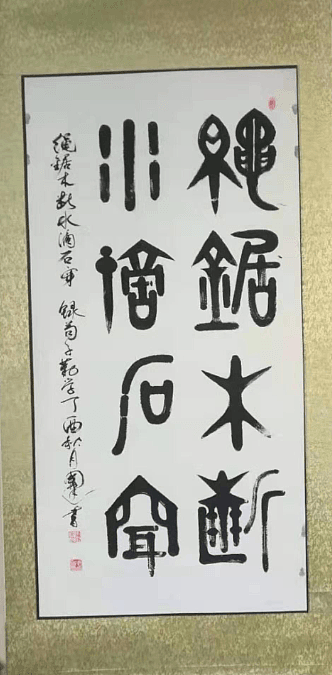 繩鋸木斷
水滴石穿
绳锯木断水滴石穿 録荀子勤学丁酉秋月書